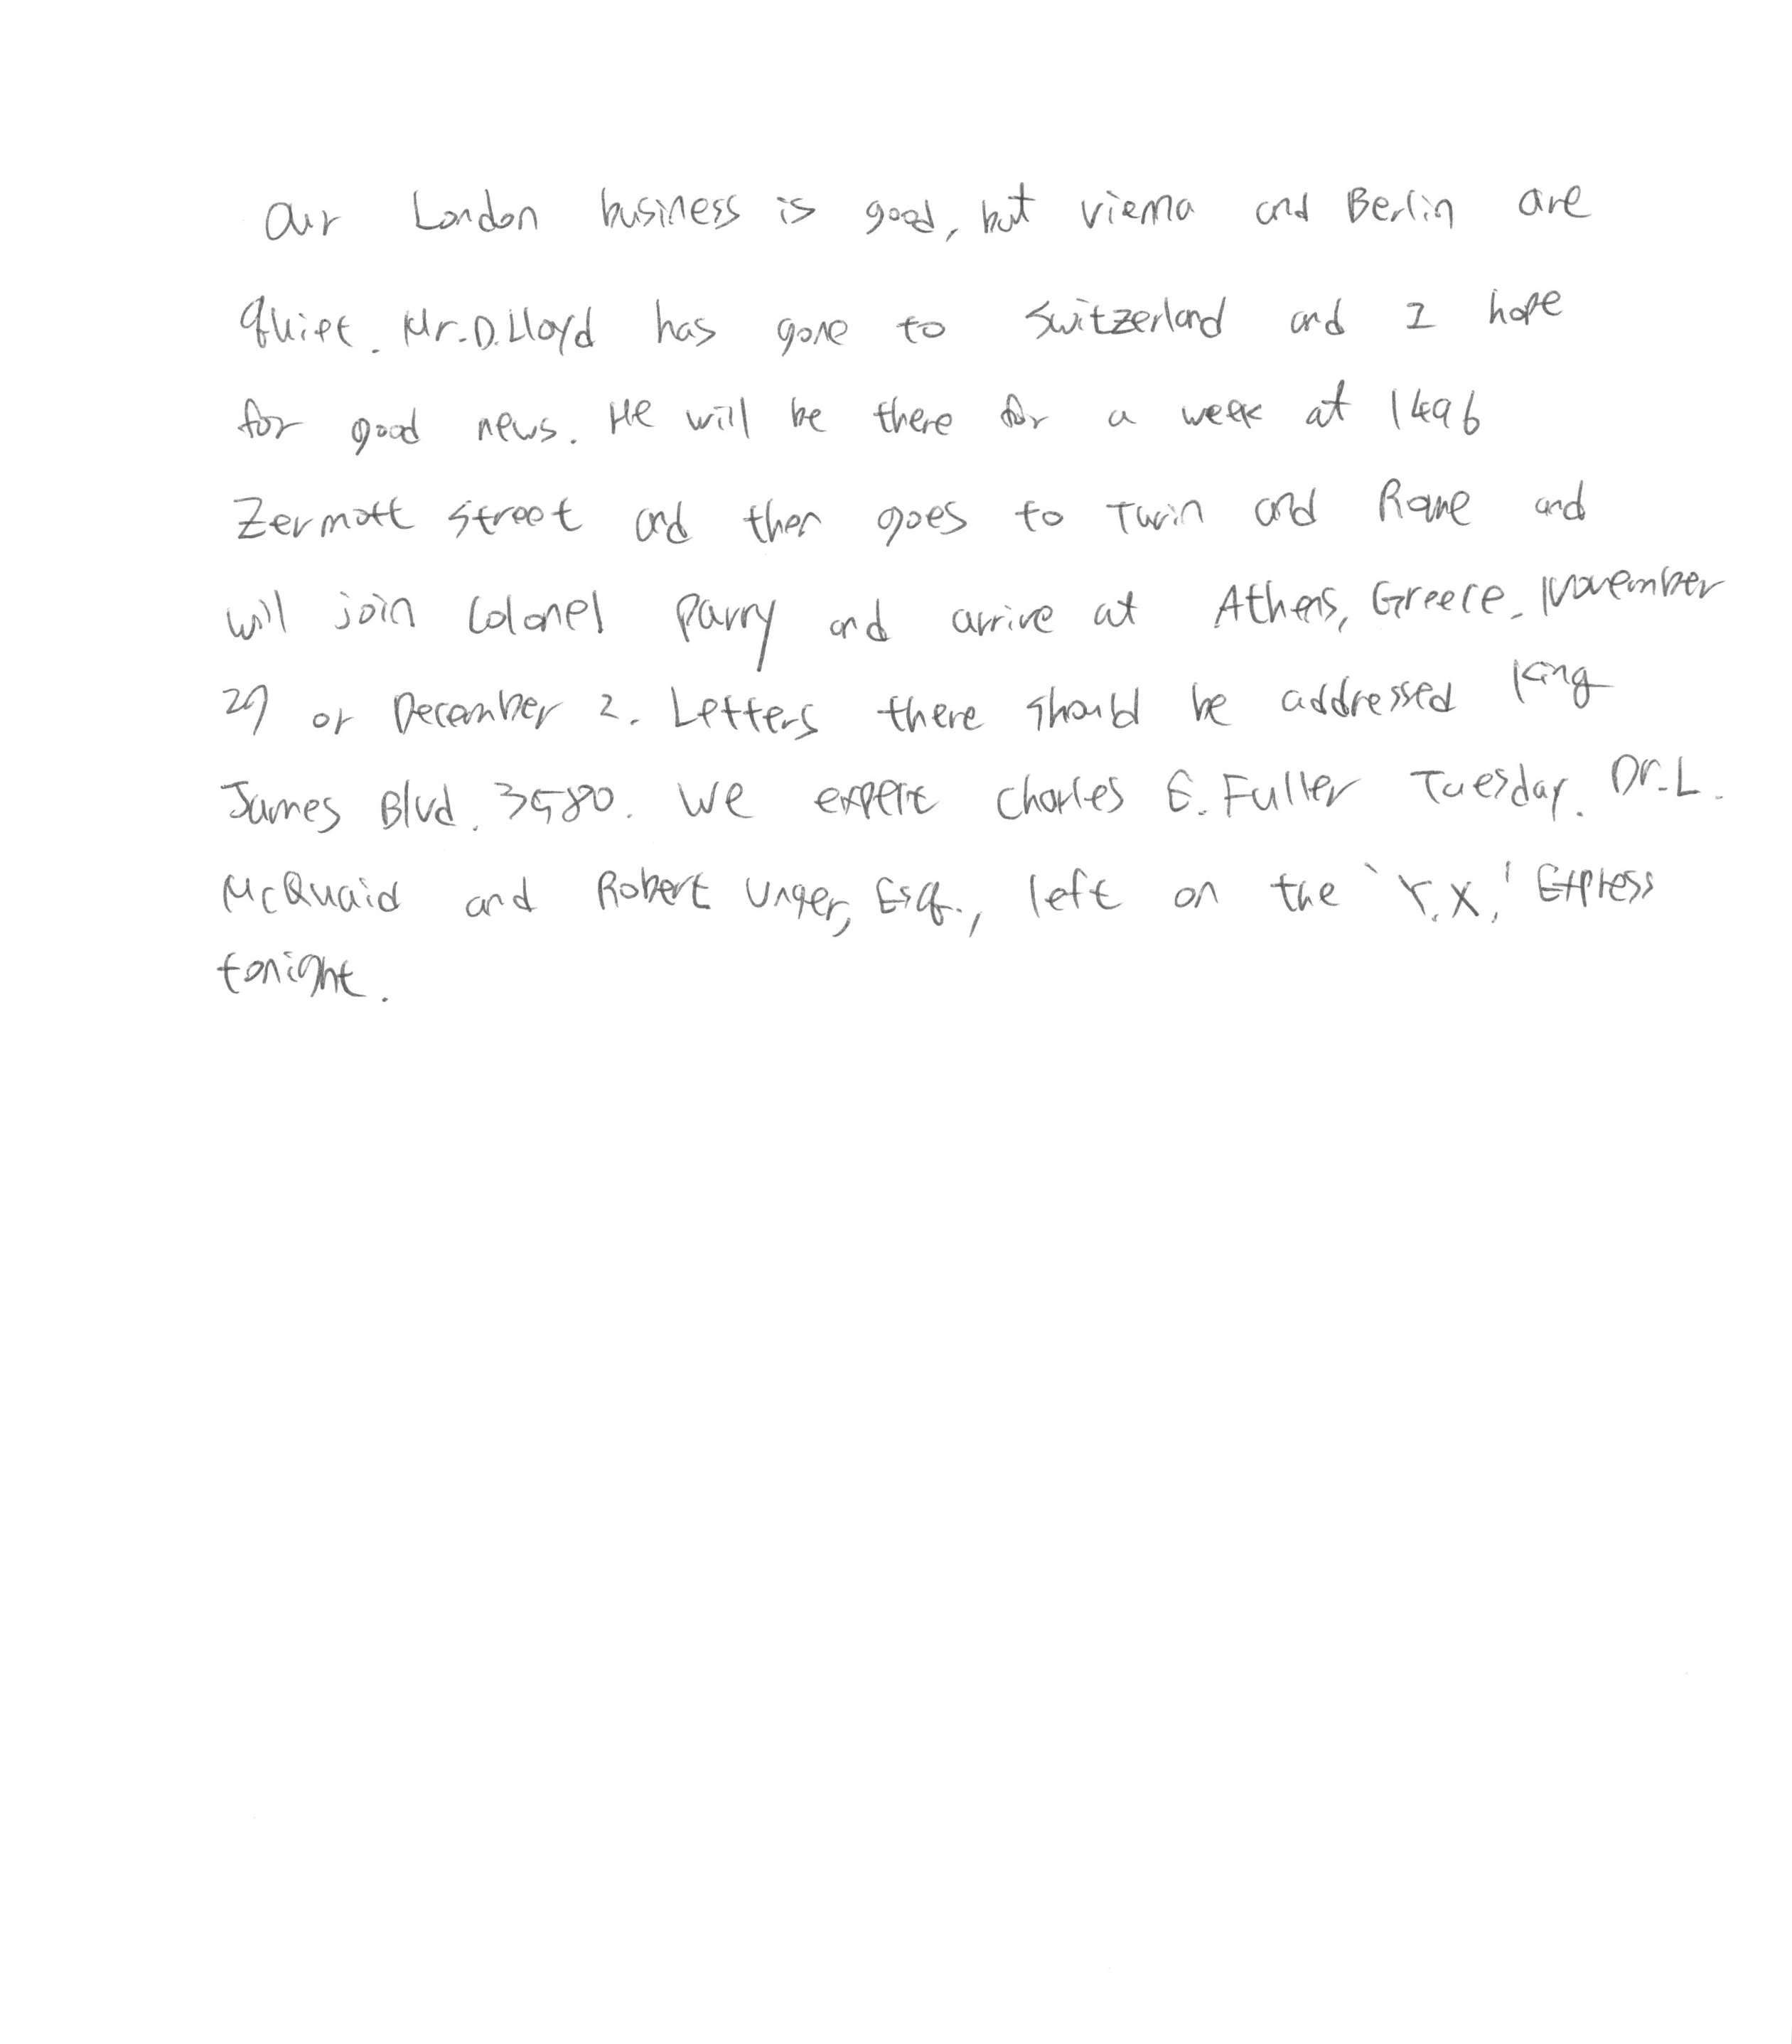 Our London business is good, but Vienna and Berlin are
quiet. Mr. D. Lloyd has gone to Switzerland and I hope
for good news. He will be there for a week at 1496
Zermott Street and then goes to Turin and Rome and
will join Colonel Parry and arrive at Athens, Greece, November
29 or December 2. Letters there should be addressed King
James Blvd. 3580. We expect Charles E. Fuller Tuesday. Dr. L.
McQuaid and Robert Unger, Esq., left on the 'Y.X.' Express
tonight.